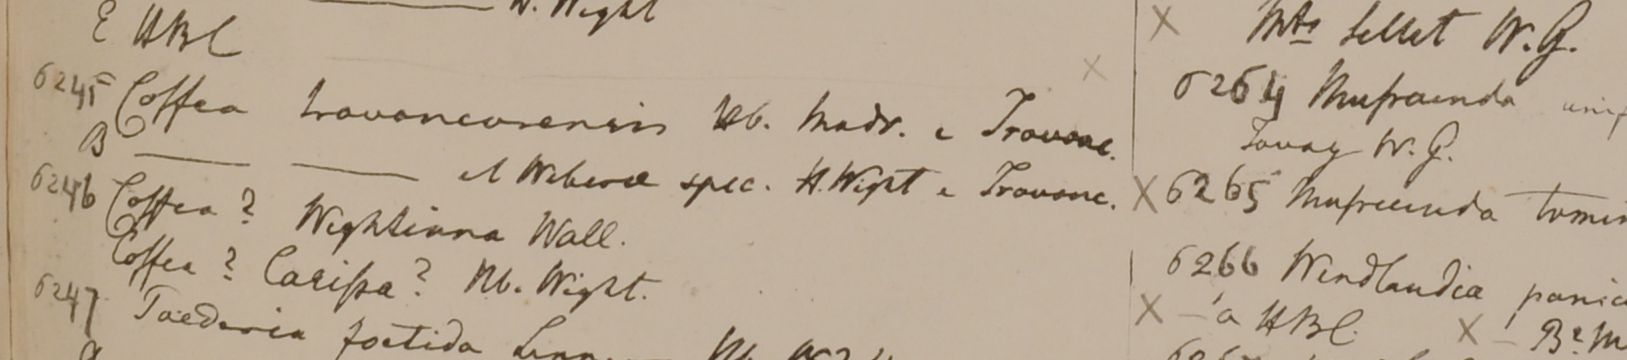 W. Wight
E HBC
6245 Coffea travancorensis Hb. Madr. e Travanc.
B ——— ——— et Weberae spec. H. Wight e Travanc.
6246 Coffea? Wightiana Wall.
Coffea? Carissa? Hb. Wight.
6247 Paederia foetida Linn.
W. G.
6264 Mussaenda
W. G.
6265 Mussaenda tomen
6266 Wendlandia panic
— a HBC